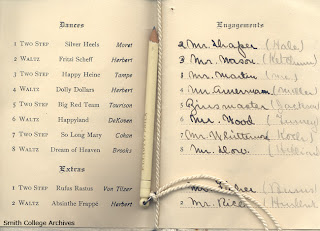 Dances
1 Two Step Silver Heels Moret
2 Waltz Fritzi Scheff Herbert
3 Two Step Happy Heine Lampe
4 Waltz Dolly Dollars Herbert
5 Two Step Big Red Team Tourison
6 Waltz Happyland DeKoven
7 Two Step So Long Mary Cohan
8 Waltz Dream of Heaven Brooks
Extras
1 Two Step Rufus Rastus Von Tilzer
2 Waltz Absinthe Frappé Herbert
Engagements
2 Mr. Draper (Hale)
3 Mr. Morson (Ketchum)
3 Mr. Martin
4 Mr. Annerman (Miller)
5 (Jackson)
6 Mr. Wood
7 Mr. Whittum
8 Mr. Dow.
Mr. Fisher
2 Mr.
Smith College Archives